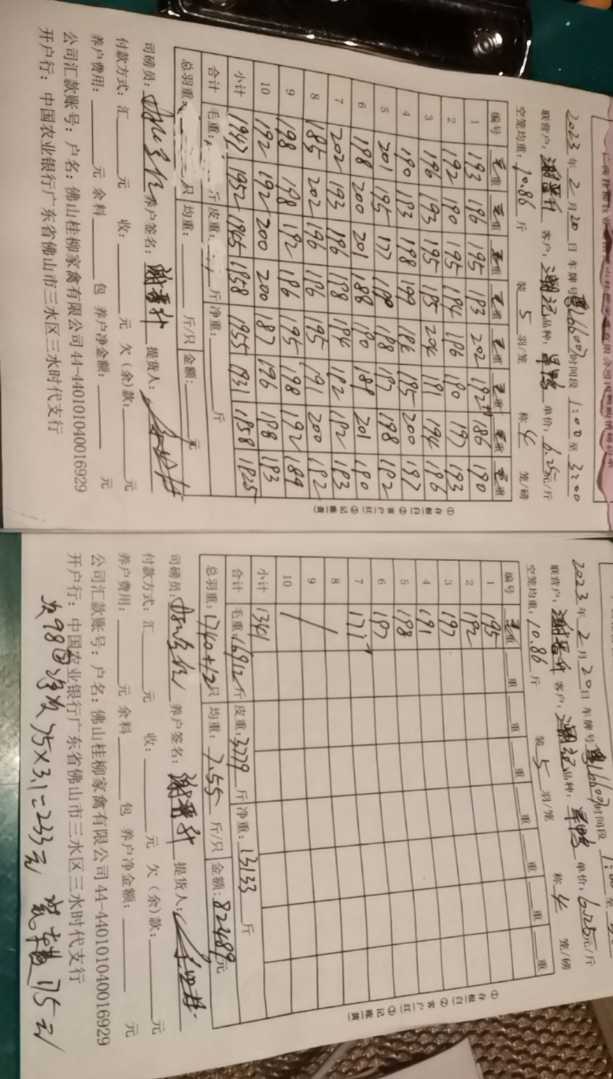 2023年2月20日 车牌号 时间段 1:00至3:00
联营户： 客户： 品种： 单价：6.25元/斤
空笼均重：10.86斤 装5羽/笼 称4笼/磅
编号 重 重 重 重 重 重 重 重
1 193 196 195 193 202 192 186 190
2 192 190 195 194 196 190 197 193
3 196 193 195 195 204 191 194 196
4 190 193 198 199 196 195 200 197
5 201 195 177 198 198 197 198 192
6 198 200 201 188 190 189 201 190
7 202 193 196 198 194 192 192 193
8 185 202 196 196 195 191 200 192
9 198 198 192 196 195 198 192 189
10 192 192 200 200 187 196 198 193
小计 1947 1952 1945 1958 1955 1931 1958 1925
合计 毛重： 斤 皮重： 斤 净重： 斤
总羽重： 只 均重： 斤/只 金额： 元
司磅员： 养户签名： 提货人：
付款方式：汇 元 收： 元 欠（余）款： 元
养户费用： 元 余料 包 养户净金额： 元
公司汇款账号：户名：佛山桂柳家禽有限公司 44-440101040016929
开户行：中国农业银行广东省佛山市三水区三水时代支行
①存根（白） ②客户（红） ③记账（黄）
2023年2月20日 车牌号 时间段
联营户： 客户： 品种： 单价：6.25元/斤
空笼均重：10.86斤 装5羽/笼 称4笼/磅
编号 重 重 重 重 重 重 重 重
1 195
2 192
3 197
4 191
5 198
6 197
7 171
8
9
10
小计 1341
合计 毛重：16912斤 皮重：3779斤 净重：13133斤
总羽重：1740+12只 均重：7.55斤/只 金额：82489元
司磅员： 养户签名： 提货人：
付款方式：汇 元 收： 元 欠（余）款： 元
养户费用： 元 余料 包 养户净金额： 元
公司汇款账号：户名：佛山桂柳家禽有限公司 44-440101040016929
开户行：中国农业银行广东省佛山市三水区三水时代支行
①存根（白） ②客户（红） ③记账（黄）
75×3.1=233元